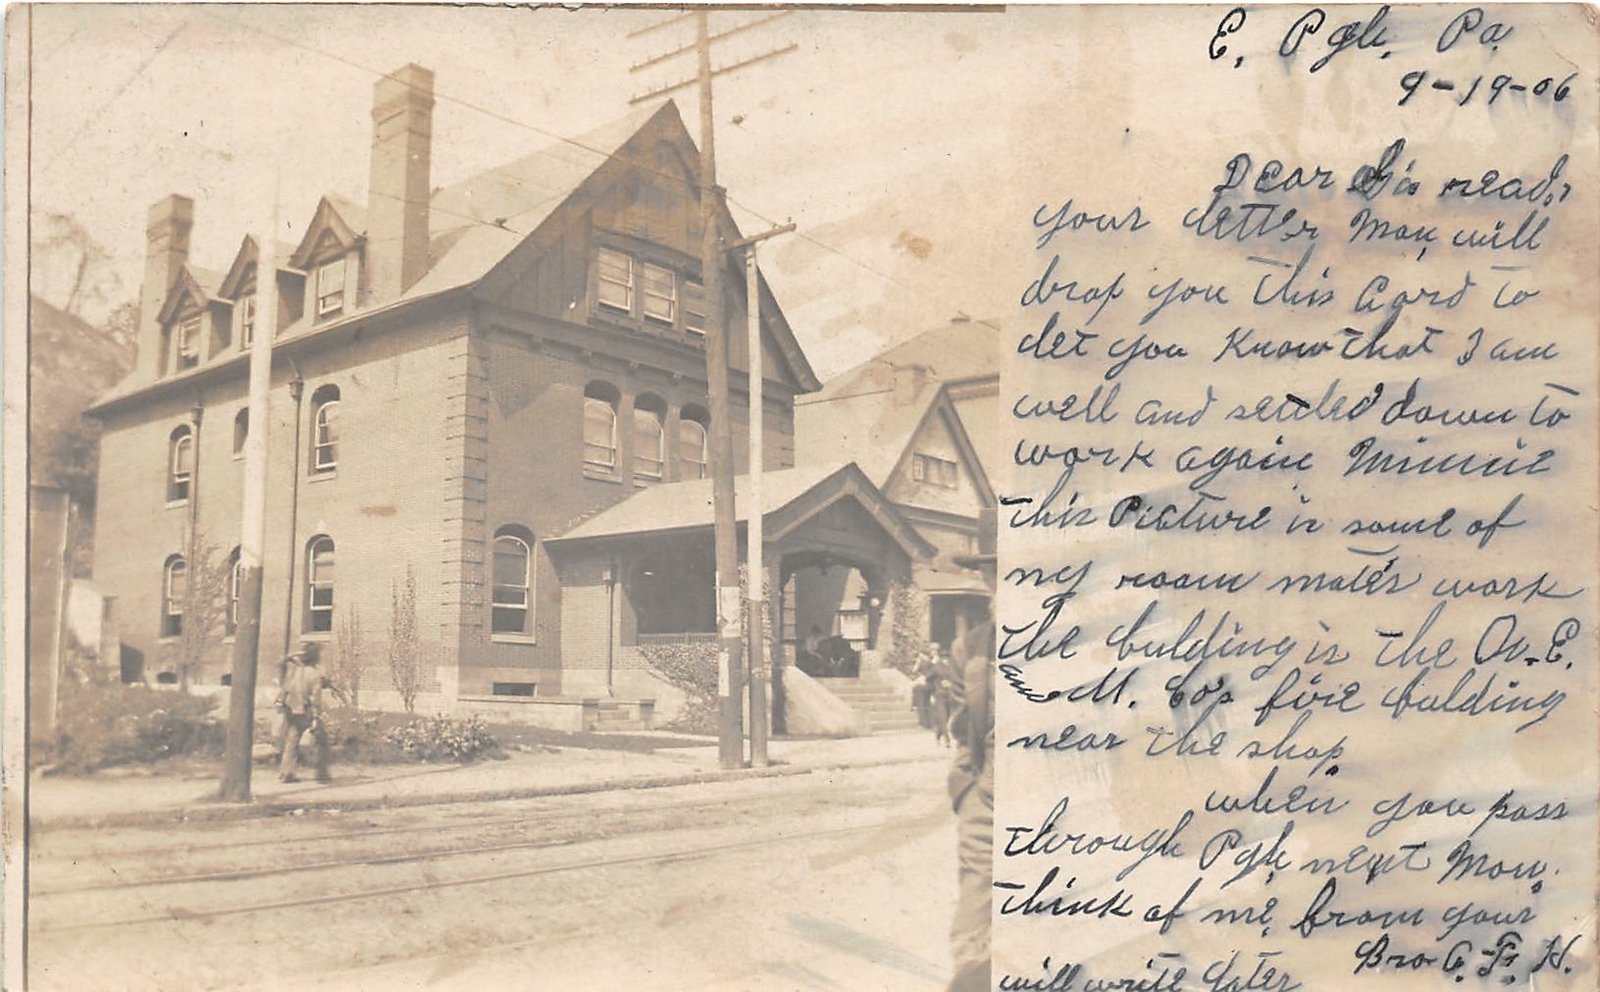 E. Pgh, Pa.
9-19-06
Dear Sis read,
your letter Mon, will
drop you this Card to
let you Know that I am
well and settled down to
work again Minnie
this Picture is some of
my room mates work
the bulding is the W. E.
and M. Co's fire bulding
near the shop.
when you pass
through Pgh, next Mon.
think of me, from your
Bro C. F. H.
will write later